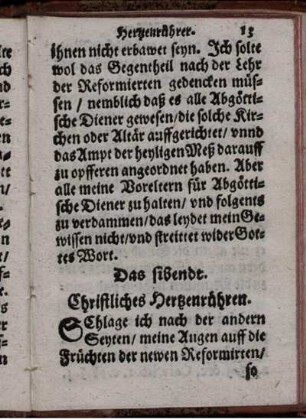 Hertzenrührer. 13
ihnen nicht erbawet seyn. Ich solte
wol das Gegentheil nach der Lehr
der Reformierten gedencken müs-
sen / nemblich daß es alle Abgötti-
sche Diener gewesen / die solche Kir-
chen oder Altär auffgerichtet / vnnd
das Ampt der heyligen Meß darauff
zu opfferen angeordnet haben. Aber
alle meine Voreltern für Abgötti-
sche Diener zu halten / vnd folgents
zu verdammen / das leydet mein Ge-
wissen nicht / vnd streittet wider Got-
tes Wort.
Das sibende.
Christliches Hertzenrühren.
SChlage ich nach der andern
Seyten / meine Augen auff die
Früchten der newen Reformirten /
so